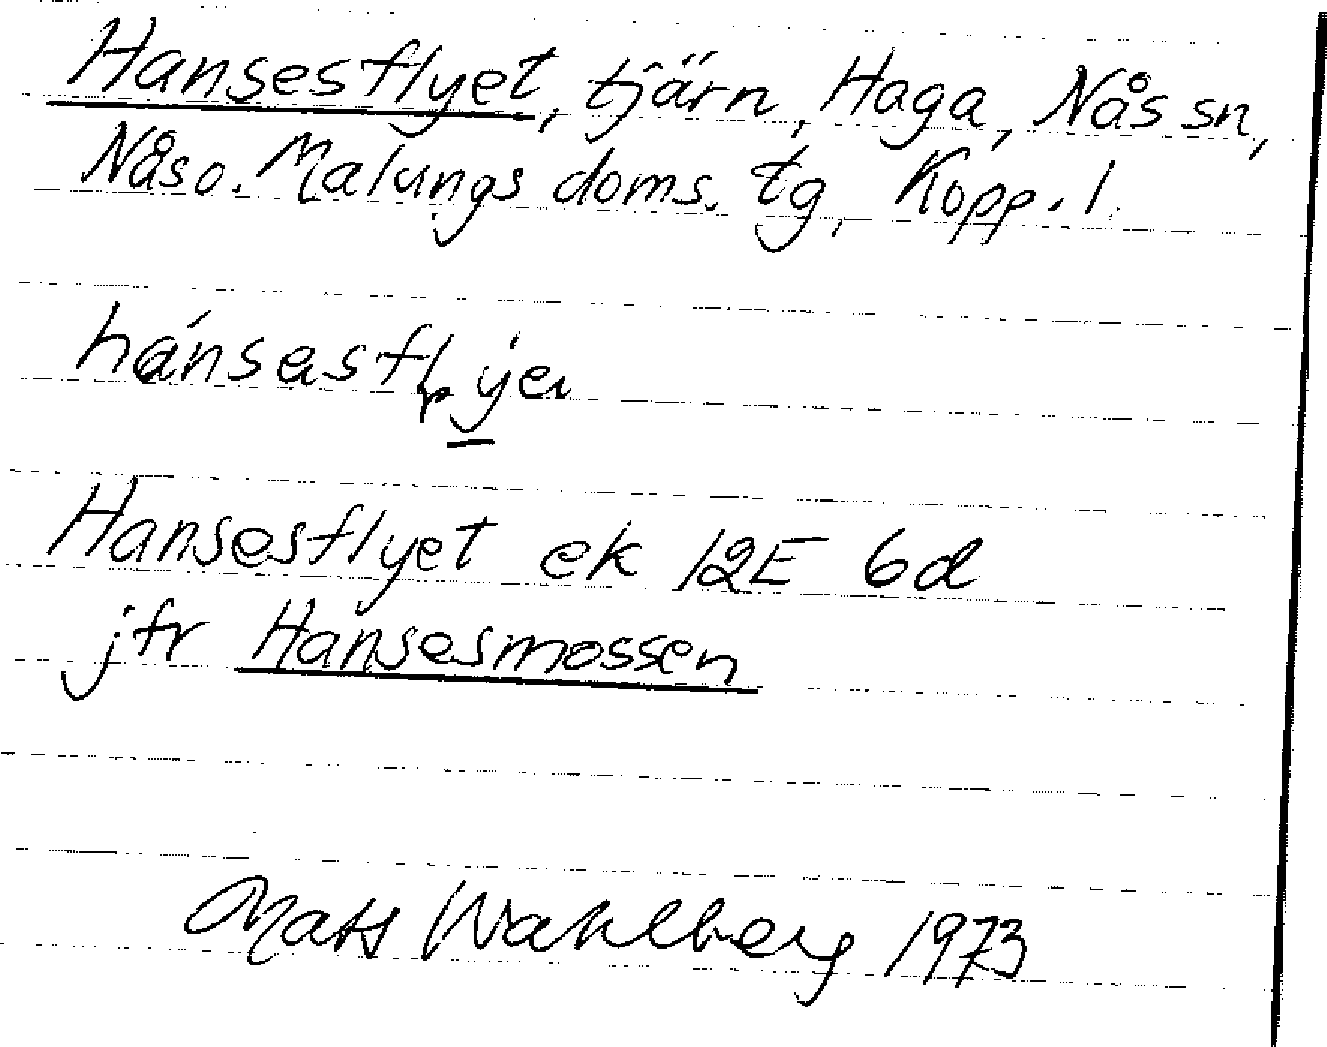 Hansesflyet, tjärn, Haga, Nås sn,
Nås o. Malungs doms. tg, Kopp. l.
Hansesflyet ek 12E 6d
jfr Hansesmossen
Mats Wahlberg 1973